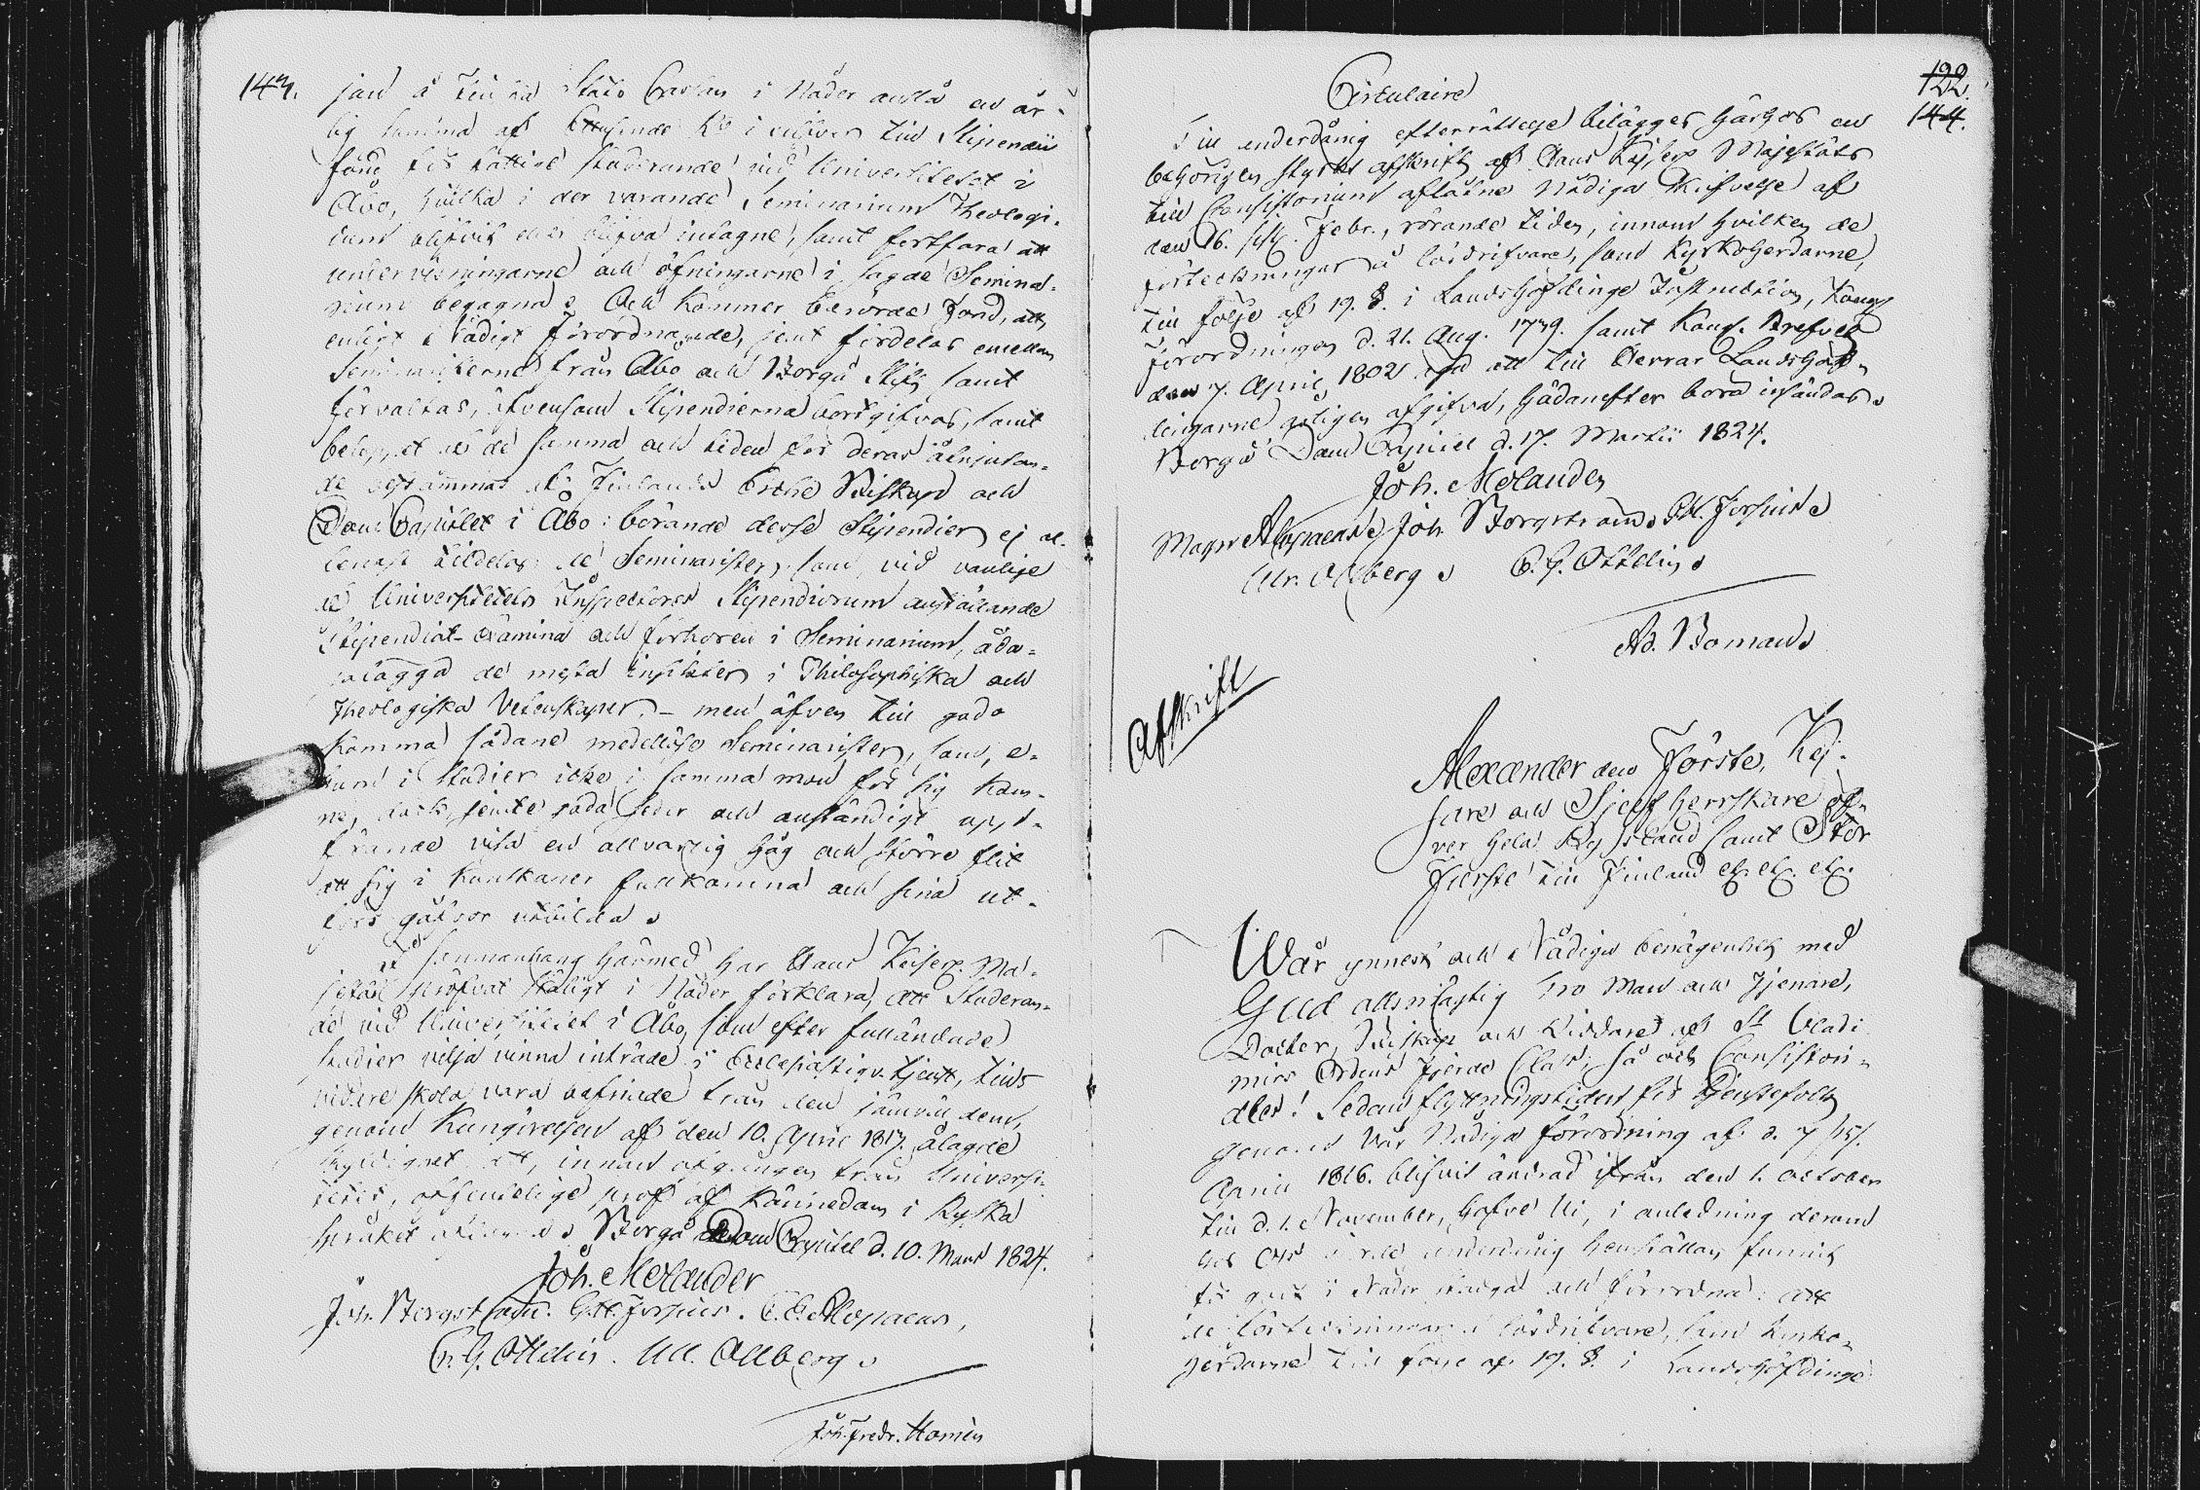 143.
jan å Finska Stats Cassan i Nåder anslå en år-
lig summa af Ettusende R:o i silfver till Stipendii
fond för fattige studerande vid Universitetet i
Åbo, hvilka i der varande Seminarium Theologi-
cum blifvit eller blifva intagne, samt fortfara att
undervisningarne och öfningarne i sagde Semina-
rium begagna. Och kommer berörde Fond, att,
enligt Nådigt förordnande, jemt fördelas emellan
Seminaristerne från Åbo och Borgå Stift, samt
förvaltas, äfvensom Stipendierna bortgifvas, samt
beloppet af de samma och tiden för deras åtnjutan-
de bestämmas af Finlands Erche Biskop och
Dom Capitlet i Åbo: börande desse Stipendier ej al-
lenast tilldelas de Seminarister, som, vid vanlige
af Universitetets Inspectores Stipendiorum anställande
Stipendiat-examina och förhören i Seminarium, åda-
galaggd de mesta insikter i Philosophiska och
Theologiska Vetenskaper, - men äfven till godo
komma sådane medellöse Seminarister, som, e-
huru i studier icke i samma mon för sig kom-
ne, dock, jemte goda seder och anständigt upp-
förande visa en allvarlig håg och större flit
att sig i kunskaper fullkomna och sina ut-
förs gåfvor utbilda.
I sammanhang härmed har Hans Kejserl. Ma-
jestät pröfvat skäligt i Nåder förklara, att Studeran-
de vid Universitetet i Åbo, som efter fulländade
studier vilja vinna inträde i Ecclesiastique tjenst, tills
vidare skola vara befriade från den jämväl dem,
genom Kungörelsen af den 10. April 1817. ålagde
skyldighet att, innan afgången från Universi-
tetet, offentelige prof af kännedom i Ryska
språket aflägga. Borgå Dom Capitel d. 10. Mars 1824.
Joh. Molander
Joh. Borgström. G. M. Forsius. C. E. Alopaeus,
C. G. Ottelin. Ull. Ahlberg.
Joh. Fredr. Homén
122.
144.
Circulaire
Till underdånig efterrättelse bilägges härhos en
behörigen styrkt afskrift af Hans Kejserl. Majestäts
till Consistorium aflåtne Nådiga Skrifvelse af
den 16. sistl. Febr., rörande tiden, innom hvilken de
förteckningar å lösdrifvare, som Kyrkoherdarne,
till följe af 19. §. i Landshöfdinge Instruction, Kongl.
Förordningen d. 21. Aug. 1739. samt Kongl. Brefvet
den 7. April 1802 att till Herrar Landshöf-
dingarne afgifva, hädanefter böra insändas.
Borgå Dom Capitel d. 17. Martii 1824.
Joh. Molander
Magn. Alopaeus. Joh. Borgström. G. M. Forsius.
Ulr. Ahlberg. C. G. Ottelin.
Ad. Boman.
Afskrift
Alexander den Förste, Kej-
sare och Sjelfherrskare öf-
ver hela Ryssland samt Stor
Furste till Finland etc. etc. etc.
Wår ynnest och Nådiga benägenhet med
Gud allsmägtig Tro Man och Tjenare,
Doctor, Biskop och Riddare af St Vladi
mirs Ordens fjerde Class; så och Consistori-
ales! Sedan flyttningstiden för tjenstefolk
genom Vår Nådiga förordning af d. 7/15/.
April 1816. blifvit ändrad ifrån den 1. October
till d. 1. November, hafve Vi, i anledning derom
hos Oss gjord underdånig hemställan funnit
för godt i Nåder stadga och förordna: att
de förteckningar å lösdrifvare, som Kyrko-
herdarne till följe af 19. §. i Landshöfdinge